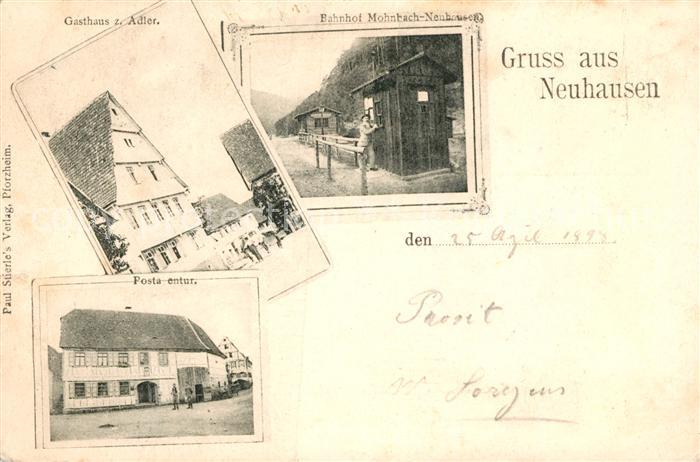 Gasthaus z. Adler.
Bahnhof Mohnbach-Neuhausen.
Gruss aus
Neuhausen
Paul Stierle's Verlag, Pforzheim.
den 25 April 1898.
Prosit
Posta entur.
W.